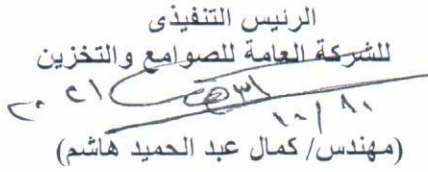 الرئيس التنفيذى
للشركة العامة للصوامع والتخزين
(مهندس/ كمال عبد الحميد هاشم)